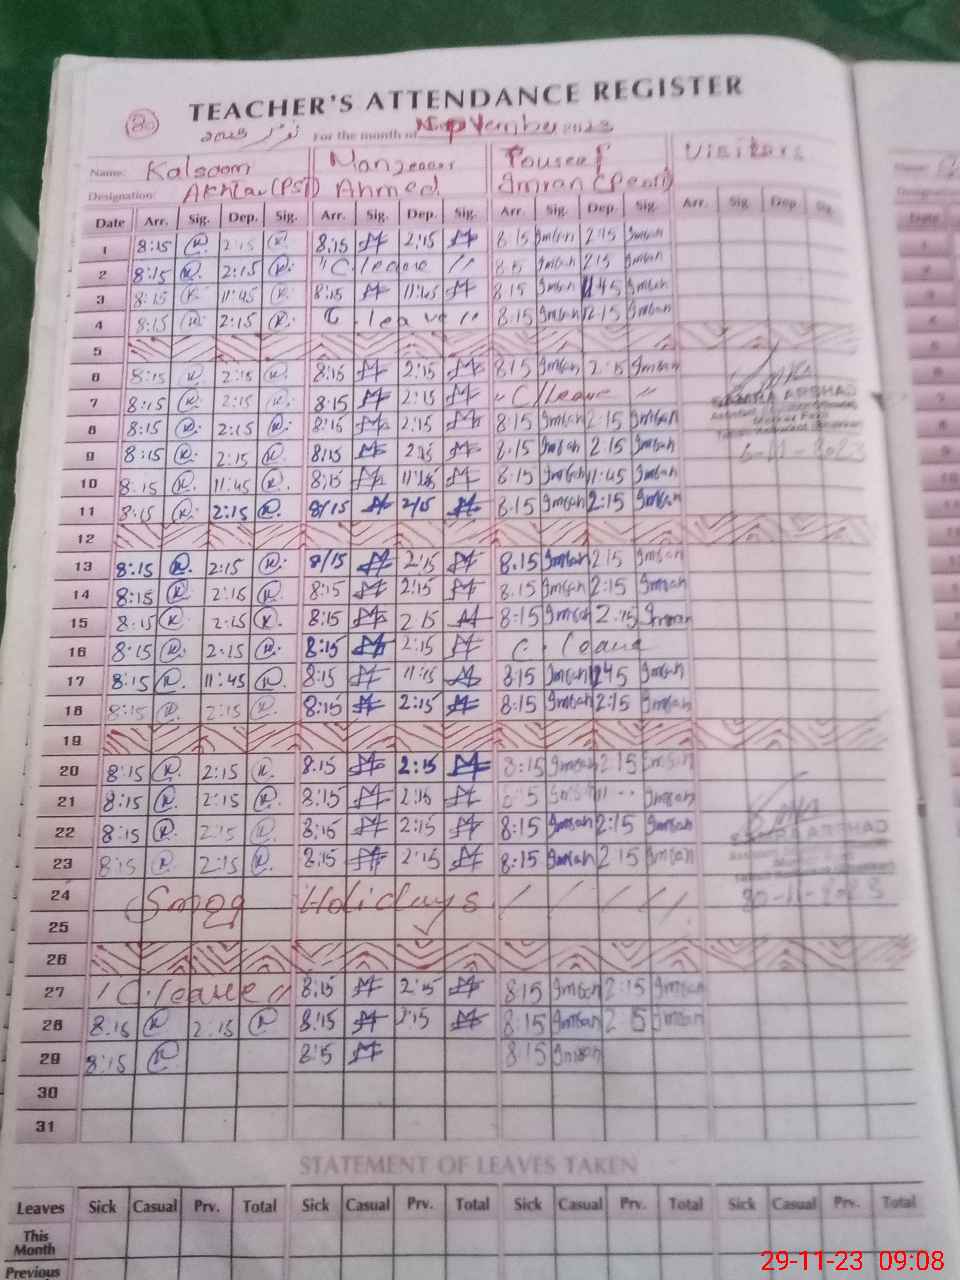 TEACHER'S ATTENDANCE REGISTER
20
نومبر 2023 For the month of November 2023
Name: Kalsoom Manzoor Yousaf Visitors
Designation: Akhtar (PST) Ahmed Imran
Date Arr. Sig. Dep. Sig. Arr. Sig. Dep. Sig. Arr. Sig. Dep. Sig. Arr. Sig Dep Sig
1 8:15 K 2:15 K 8:15 2:15 8:15 Imran 2:15 Imran
2 8:15 K 2:15 K " C. leave " Imran 2:15 Imran
3 8:15 K 11:45 K 8:15 11:45 8:15 Imran 11:45 Imran
4 8:15 K 2:15 K C. leave " 8:15 Imran 2:15 Imran
5
6 8:15 K 2:15 K 8:15 2:15 8:15 Imran 2:15 Imran
7 8:15 K 2:15 K 8:15 2:15 " C leave "
SAMRA ARSHAD
8 8:15 K 2:15 K 8:15 2:15 8:15 Imran 2:15 Imran
9 8:15 K 2:15 K 8:15 2:15 8:15 Imran 2:15 Imran
-11-2023
10 8:15 K 11:45 K 8:15 11:45 8:15 Imran 11:45 Imran
11 8:15 K 2:15 K 8/15 2/15 8:15 Imran 2:15 Imran
12
13 8:15 K 2:15 K 8/15 2:15 8:15 Imran 2:15 Imran
14 8:15 K 2:15 K 8:15 2:15 8:15 Imran 2:15 Imran
15 8:15 K 2:15 K 8:15 2 15 8:15 Imran 2:15 Imran
16 8:15 K 2:15 K 8:15 2:15 C. leave
17 8:15 K 11:45 K 8:15 11:15 8:15 Imran 11:45 Imran
18 8:15 K 2:15 K 8:15 2:15 8:15 Imran 2:15 Imran
19
20 8:15 K 2:15 K 8:15 2:15 8:15 Imran 2:15 Imran
21 8:15 K 2:15 K 8:15 2:15 Imran Imran
22 8:15 K 2:15 K 8:15 2:15 8:15 Imran 2:15 Imran
SAMRA ARSHAD
23 8:15 K 2:15 K 8:15 2:15 8:15 Imran 2 15 Imran
24 Smog Holidays
-11-2023
25
26
27 " C. leave " 8:15 2:15 8:15 Imran 2:15 Imran
28 8:15 K 2:15 K 8:15 2:15 8:15 Imran 2:15 Imran
29 8:15 K 8:15 8:15 Imran
30
31
STATEMENT OF LEAVES TAKEN
Leaves Sick Casual Prv. Total Sick Casual Prv. Total Sick Casual Prv. Total Sick Casual Prv. Total
This
Month
Previous
29-11-23 09:08